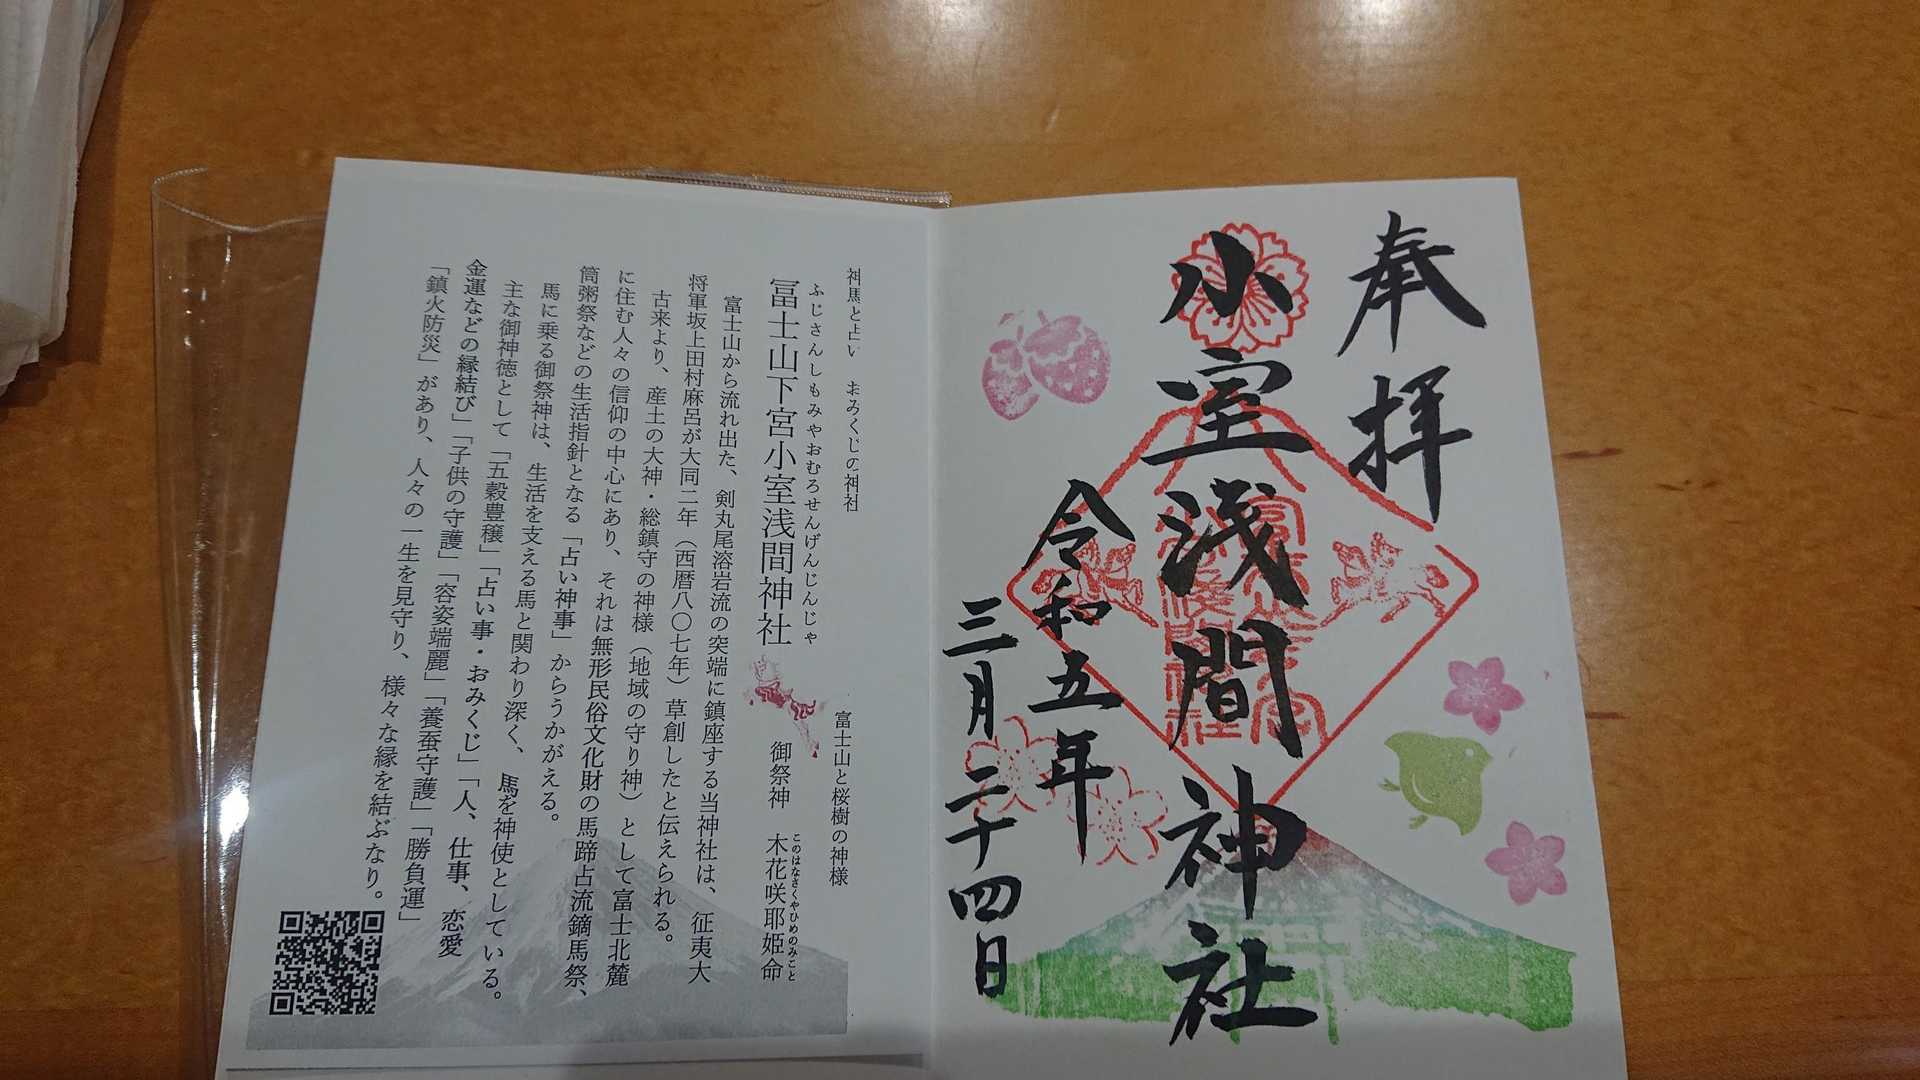 奉拝
小室浅間神社
令和五年
三月二十四日
神馬と占い おみくじの神社
富士山と桜樹の神様
ふじさんしもみやおむろせんげんじんじゃ
冨士山下宮小室浅間神社
御祭神 木花咲耶姫命
このはなさくやひめのみこと
富士山から流れ出た、剣丸尾溶岩流の突端に鎮座する当神社は、征夷大
将軍坂上田村麻呂が大同二年(西暦八〇七年)草創したと伝えられる。
古来より、産土の大神・総鎮守の神様(地域の守り神)として富士北麓
に住む人々の信仰の中心にあり、それは無形民俗文化財の馬蹄占流鏑馬祭、
筒粥祭などの生活指針となる「占い神事」からうかがえる。
馬に乗る御祭神は、生活を支える馬と関わり深く、馬を神使としている。
主な御神徳として「五穀豊穣」「占い事・おみくじ」「人、仕事、恋愛
金運などの縁結び」「子供の守護」「容姿端麗」「養蚕守護」「勝負運」
「鎮火防災」があり、人々の一生を見守り、様々な縁を結ぶなり。